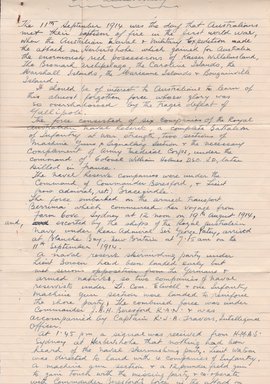 The 11th September 1914 was the day that Australians
met their baptism of fire in the first world war,
when the Australian Naval & Military Expedition made
the attack on Herbertshohe which gained for Australia
the enormously rich possessions of Kaiser Wilhelmland,
the Bismarck Archipelago, the Caroline Islands, the
Marshall Islands, the Marianne Islands & Bougainville
Island.
It should be of interest to Australians to learn of
this almost forgotten force whose glory was
so overshadowed by the tragic defeat of
Gallipoli.
The force consisted of six companies of the Royal
Australian Naval Reserve, a complete Battalion
of Infantry at war strength, two sections of
Machine Guns & Signalling section & the necessary
complement of Army Medical Corps, under the
command of Colonel William Holmes DSO. VD, later
killed in France.
The Naval Reserve companies were under the
Command of Commander Beresford, & Lieut
(now admiral, ret) Bracegirdle.
The force embarked on the armed transport
Berrima which commenced her voyage from
Farm Cove, Sydney at 12 noon on 19th August 1914,
and, escorted by the ships of the Royal Australian
Navy under Rear Admiral Sir George Patey, arrived
at Blanche Bay, New Britain at 7.15 am on the
11th September 1914.
A naval reserve skirmishing party under
Lieut Bowen had been landed early, but
met serious opposition from the Germans &
armed natives, so two companies of naval
reservists under Lt. Com. Elwell & one Infantry
machine gun section were landed to reinforce
the shore party; the combined force was under
Commander J.A.H. Beresford R.A.N. & was
accompanied by Captain R.V.B. Travers, Intelligence
Officer.
At 1.45 pm a signal was received from H.M.A.S.
Sydney at Herbertshohe that nothing had been
heard of the naval skirmishing party. Lieut Watson
was directed to land with 4 companies of Infantry,
a machine gun section & a 12 pounder field gun
to join touch with the missing party & to operate